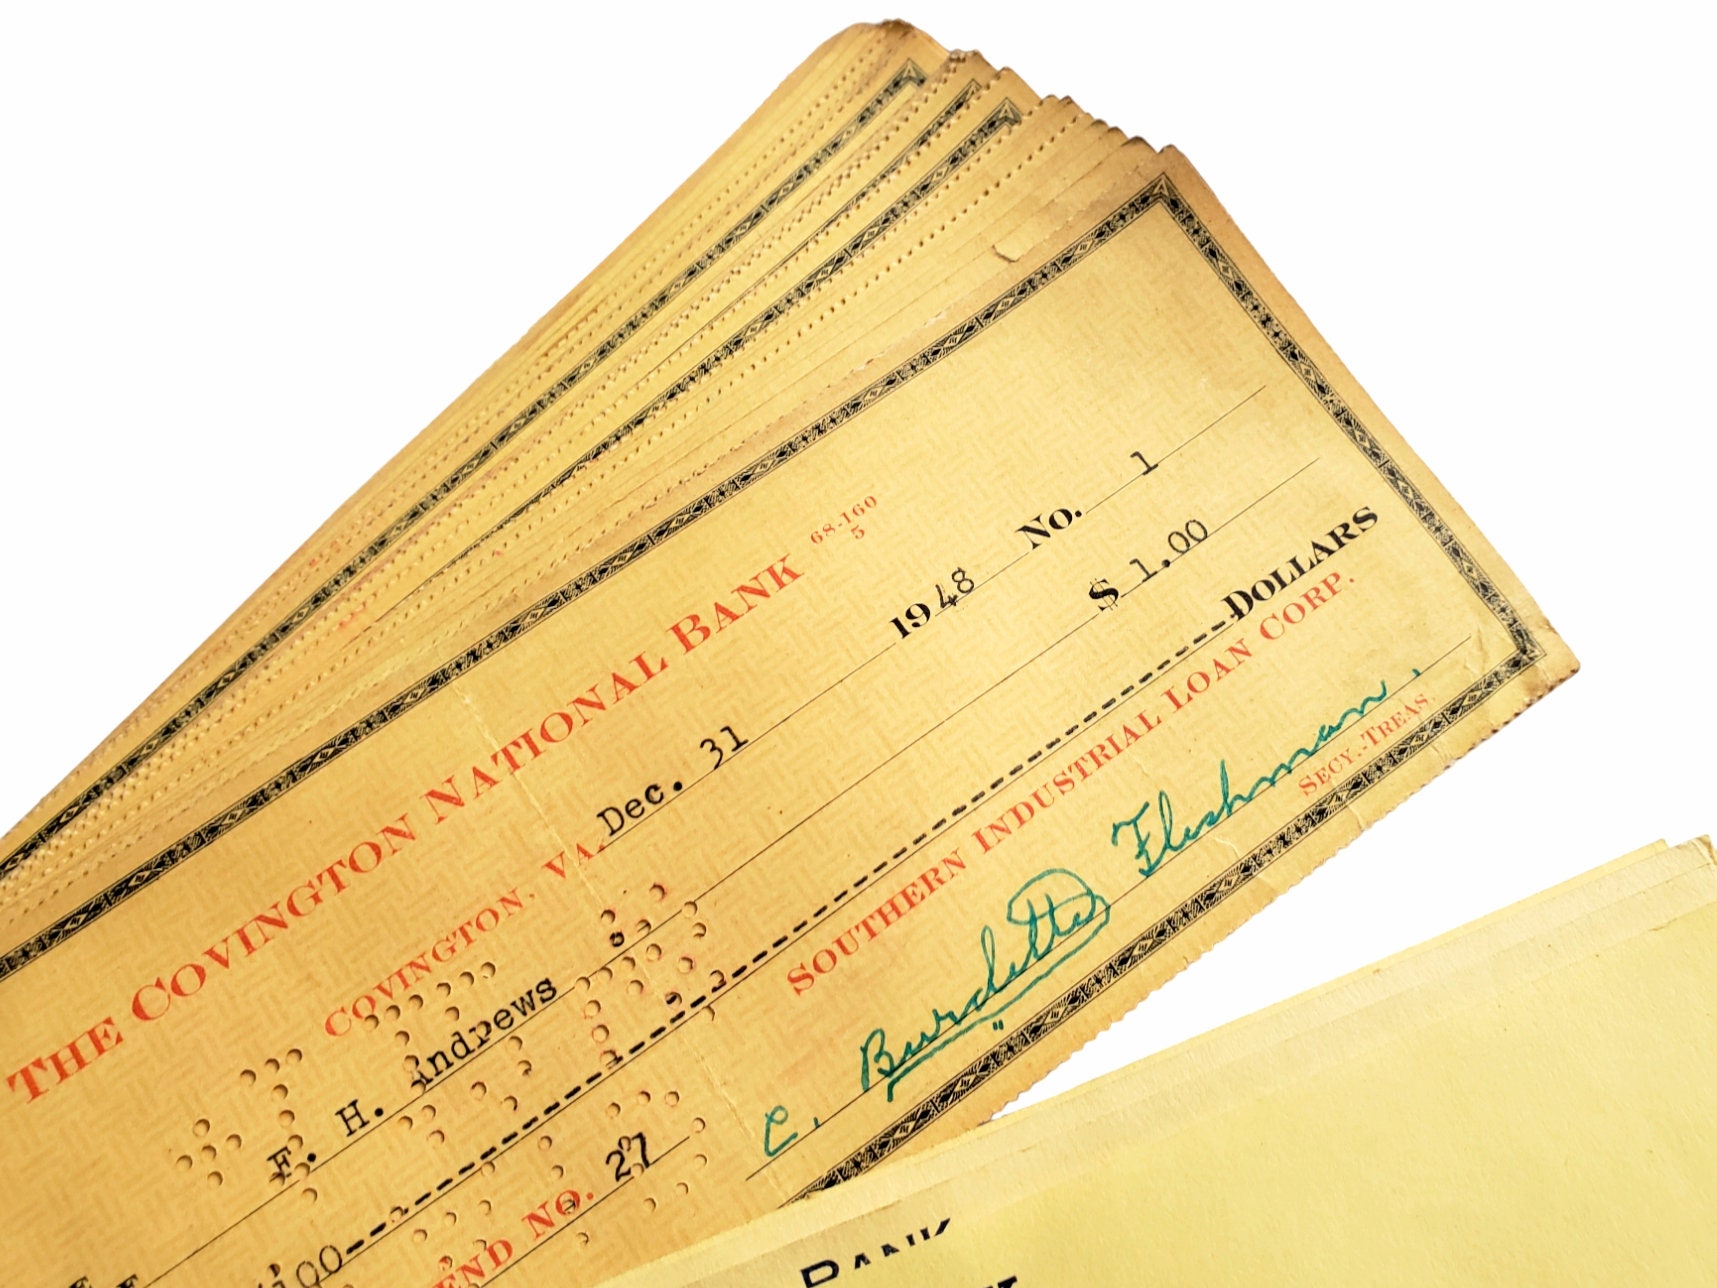 THE COVINGTON NATIONAL BANK 68-160
5
COVINGTON, VA. Dec. 31 1948 No. 1
F. H. Andrews $ 1.00
DOLLARS
SOUTHERN INDUSTRIAL LOAN CORP.
END NO. 27
C. Burdette Fleshman.
SECY.-TREAS.
BANK